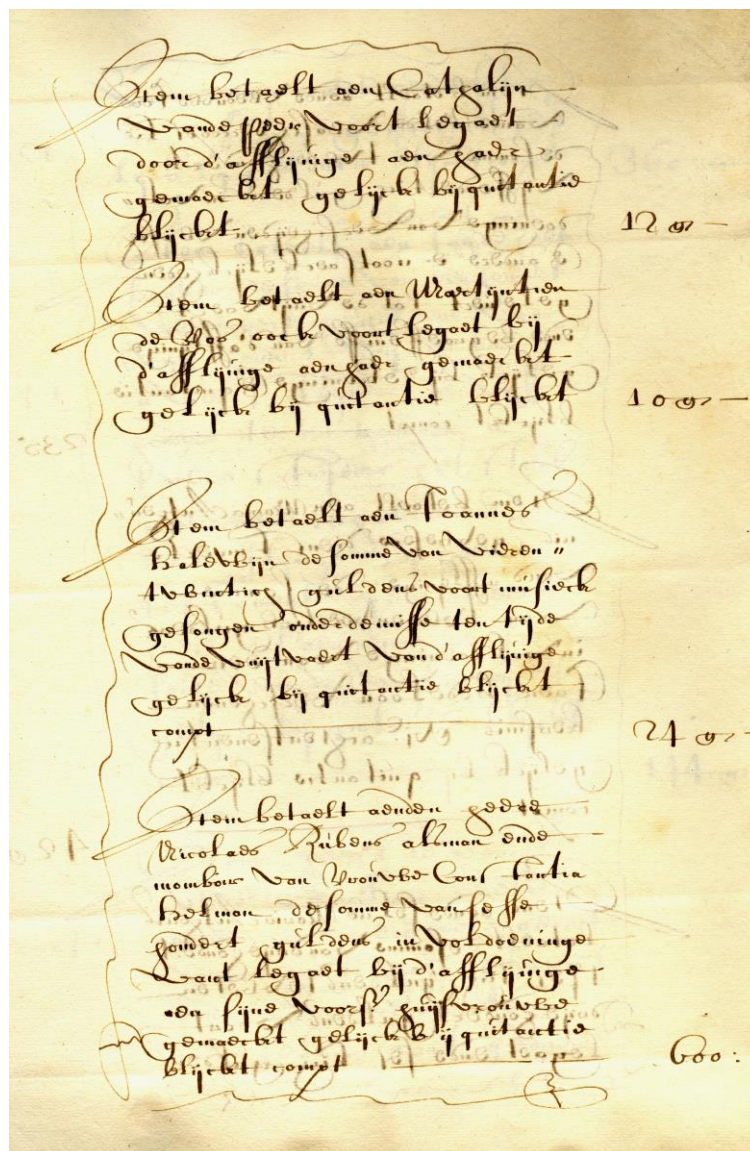 Item betaelt aen Cathalijn
vande Peer voort legaet
door d'afflijvige aen haer
gemaeckt gelijck bij quitantie
blijckt 12 gs —
Item betaelt aen Martijntien
de Vos oock voort legaet bij
d'afflijvige aen haer gemaeckt
gelijck bij quitantie blijckt 10 gs —
Item betaelt aen Joannes
halewijn de somme van vieren"
twintich guldens voort musieck
gesongen onder de misse ten tijde
vande uuijtvaert van d'afflijvige
gelijck bij quitantie blijckt
compt 24 gs —
Item betaelt aenden heere
Nicolaes Rubens als man ende
momboir van Vrouwe Constantia
helman de somme van sesse
hondert guldens in voldoeninge
vant legaet bij d'afflijvige
aen sijne voors. huijsvrouwe
gemaeckt gelijck bij quitantie
blijckt compt 600: